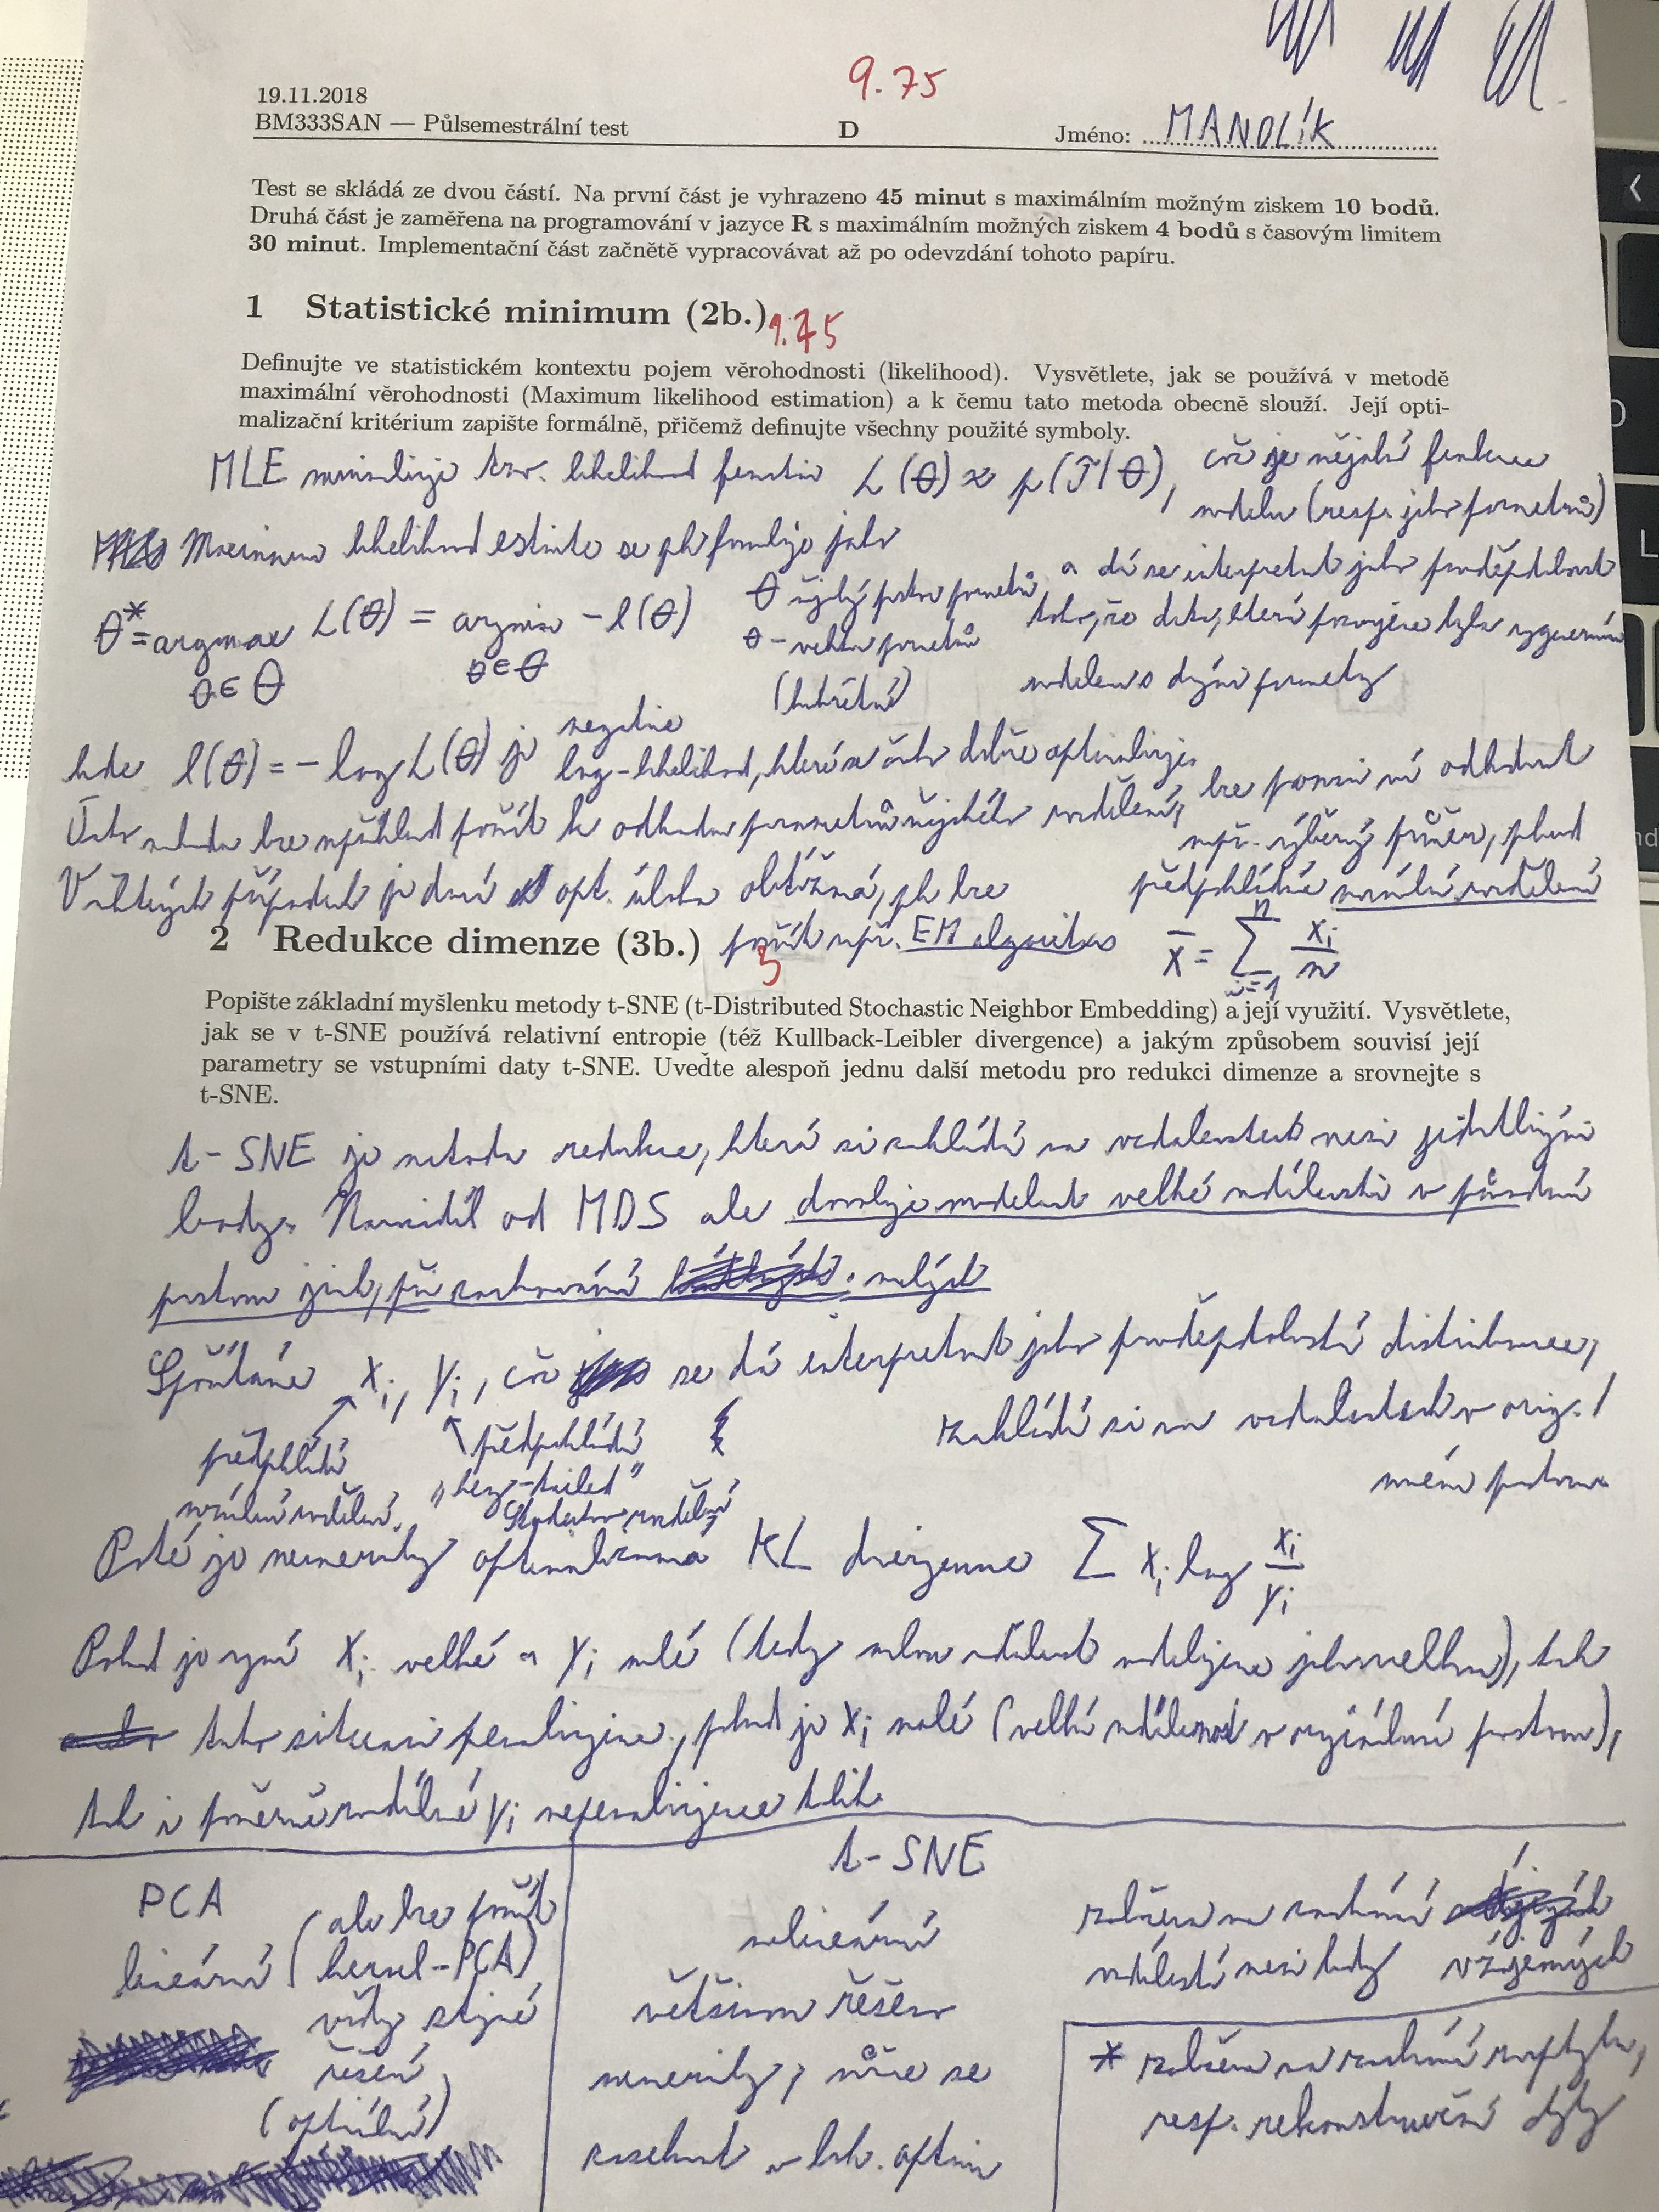 9.75
19.11.2018
BM333SAN — Půlsemestrální test
D
Jméno: MANDLÍK
Test se skládá ze dvou částí. Na první část je vyhrazeno 45 minut s maximálním možným ziskem 10 bodů.
Druhá část je zaměřena na programování v jazyce R s maximálním možných ziskem 4 bodů s časovým limitem
30 minut. Implementační část začnětě vypracovávat až po odevzdání tohoto papíru.
1 Statistické minimum (2b.) 1.75
Definujte ve statistickém kontextu pojem věrohodnosti (likelihood). Vysvětlete, jak se používá v metodě
maximální věrohodnosti (Maximum likelihood estimation) a k čemu tato metoda obecně slouží. Její opti-
malizační kritérium zapište formálně, přičemž definujte všechny použité symboly.
MLE tzv. likelihood L(θ) ≈ p(T|θ), což je nějaká funkce
modelu (resp. jeho parametrů)
Maximum likelihood se jako
a dá se interpretovat jako pravděpodobnost
θ* = argmax L(θ) = argmin -l(θ)
θ∈Θ θ∈Θ
Θ prostor parametrů
θ - vektor parametrů
(konkrétní)
toho, že data, která
modelem s parametry
kde l(θ) = - log L(θ) je negative
log-likelihood, která se
lze pomocí ní odhadnout
lze například použít k odhadu parametrů rozdělení,
např. výběrový průměr, pokud
předpokládáme normální rozdělení
V případech je daná opt. úloha obtížná, lze
použít např. EM algoritmus
x̄ = Σ xi/n
n
i=1
2 Redukce dimenze (3b.) 3
Popište základní myšlenku metody t-SNE (t-Distributed Stochastic Neighbor Embedding) a její využití. Vysvětlete,
jak se v t-SNE používá relativní entropie (též Kullback-Leibler divergence) a jakým způsobem souvisí její
parametry se vstupními daty t-SNE. Uveďte alespoň jednu další metodu pro redukci dimenze a srovnejte s
t-SNE.
t-SNE je metoda redukce, která si zakládá na vzdálenostech mezi jednotlivými
body. Narozdíl od MDS ale dovoluje modelovat velké vzdálenosti v původním
prostoru jinak, při zachování malých
Spočítáme xi, yi, což se dá interpretovat jako pravděpodobnostní distribuce,
zakládá si na vzdálenostech v orig./
novém prostoru
předpokládá
normální rozdělení
předpokládá
"heavy-tailed"
Studentovo rozdělení
Poté je numericky optimalizována KL divergence Σ xi log xi/yi
Pokud je nyní xi velké a yi malé (tedy malou vzdálenost modelujeme jako velkou), tak
tuto situaci penalizujeme, pokud je xi malé (velká vzdálenost v originálním prostoru),
tak i poměrně rozdílné yi nepenalizujeme tolik.
PCA
lineární (ale lze použít
kernel-PCA)
vždy stejné
řešení
(optimální)
t-SNE
nelineární
většinou řešeno
numericky, může se
zaseknout v lok. optimu
založena na zachování vzájemných
vzdáleností mezi body
* založena na zachování rozptylu,
resp. rekonstrukční chyby